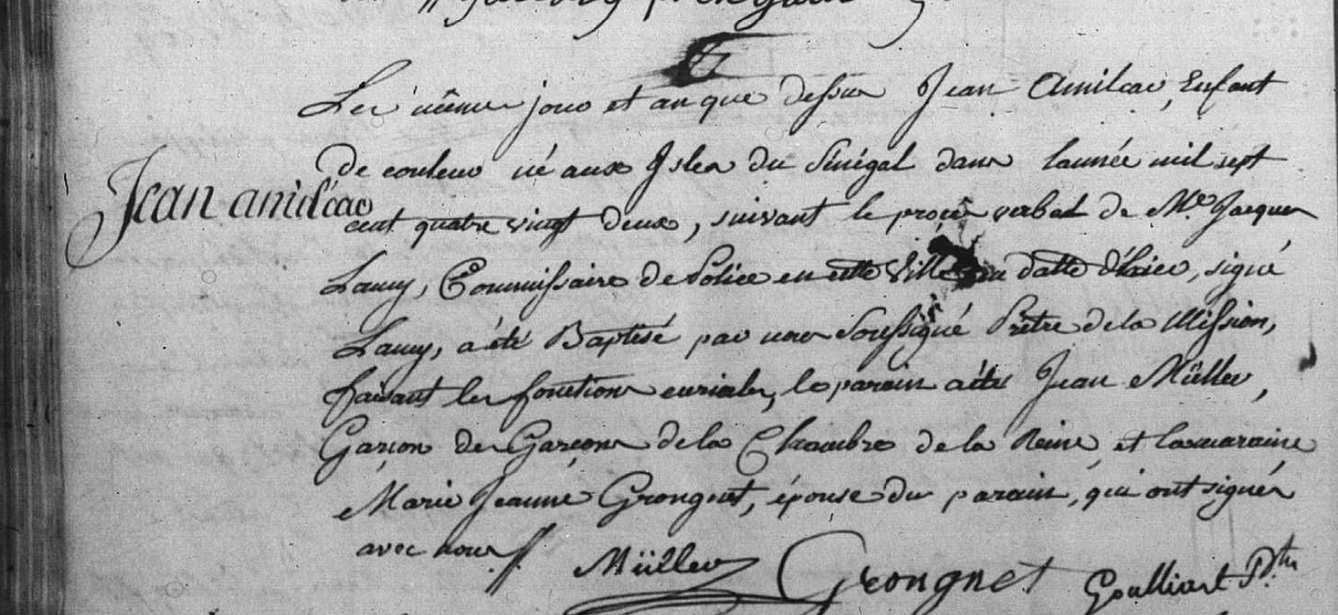 Les même jour et an que dessus Jean Amilcar, Enfant
Jean amilcar
de couleur né aux Isles du Sénégal dans lannée mil sept
cent quatre vingt deux, suivant le procès verbal de Me. Jacques
Lamy, Commissaire de Police en cette Ville en datte d'hier, signé
Lamy, a été Baptisé par nous Soussigné Prêtre de la Mission,
faisant les fonctions curiales, le parain a été Jean Müller,
Garçon des Garçons de la Chambre de la Reine, et la maraine
Marie Jeanne Grongnet, épouse du parain, qui ont signés
avec nous
Müller Grongnet Goulliart Ptre